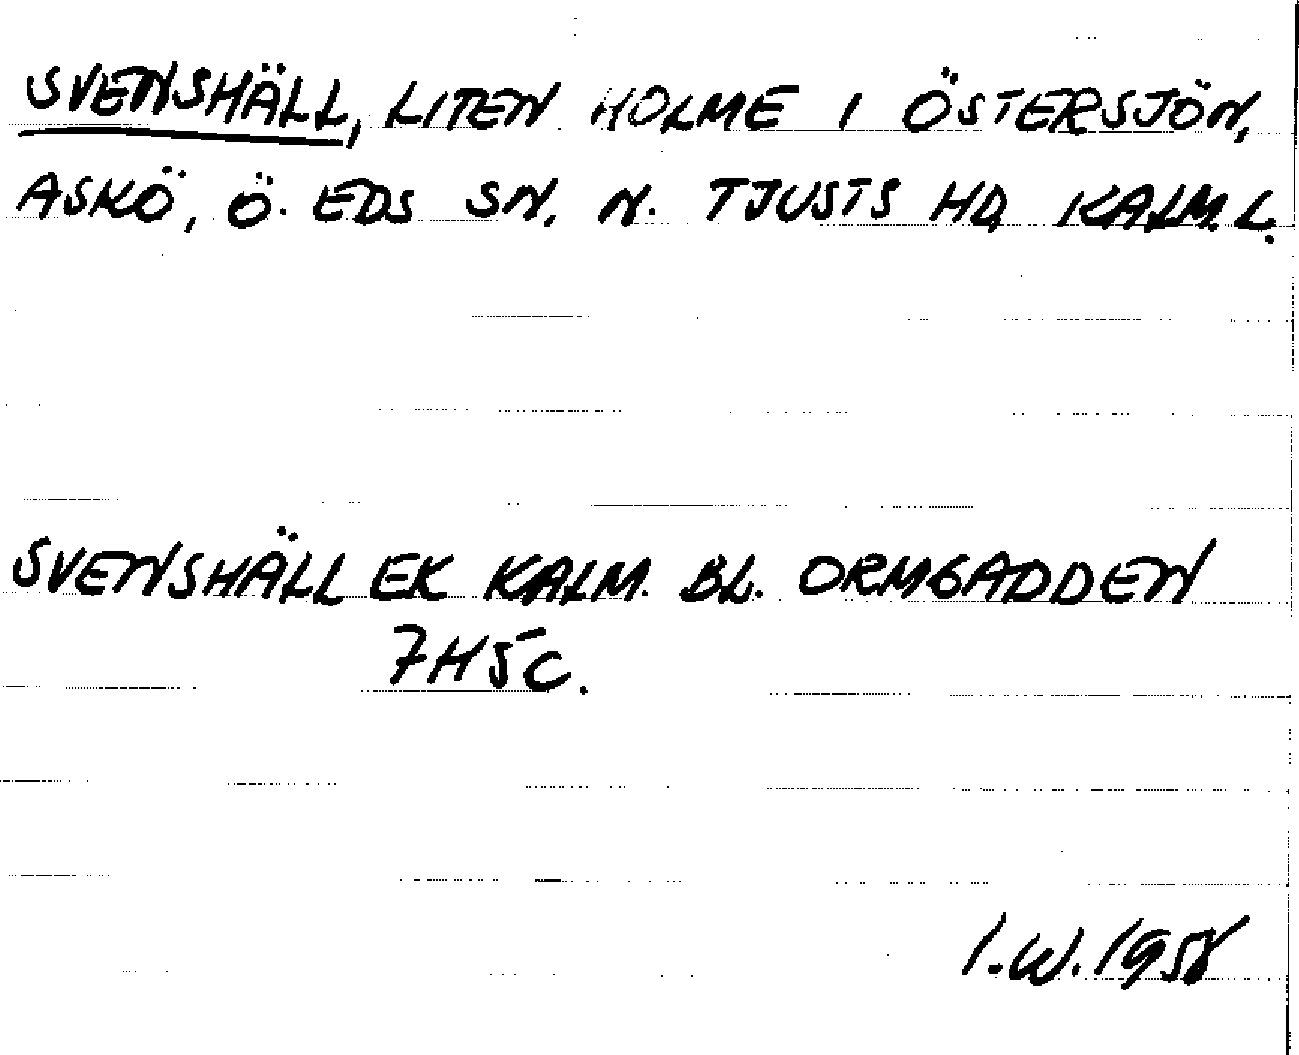 SVENSHÄLL, LITEN HOLME I ÖSTERSJÖN,
ASKÖ, Ö. EDS SN, N. TJUSTS HD, KALM. L.
SVENSHÄLL EK KALM. BL. ORMGADDEN
7H5C.
I.W. 1958